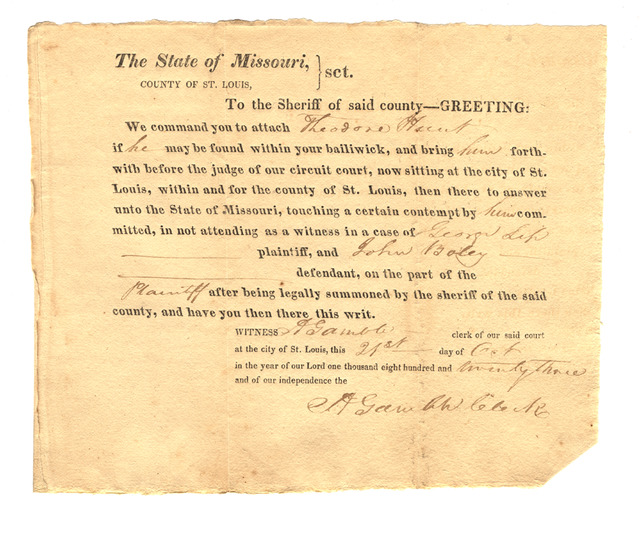 The State of Missouri, } sct.
COUNTY OF ST. LOUIS,
To the Sheriff of said county—GREETING:
We command you to attach Theodore Hunt
if he may be found within your bailiwick, and bring him forth-
with before the judge of our circuit court, now sitting at the city of St.
Louis, within and for the county of St. Louis, then there to answer
unto the State of Missouri, touching a certain contempt by him com-
mitted, in not attending as a witness in a case of George
plaintiff, and John Boley
defendant, on the part of the
Plaintiff after being legally summoned by the sheriff of the said
county, and have you then there this writ.
WITNESS A Gamble clerk of our said court
at the city of St. Louis, this 21st day of Oct
in the year of our Lord one thousand eight hundred and twenty three
and of our independence the
A Gamble Clerk